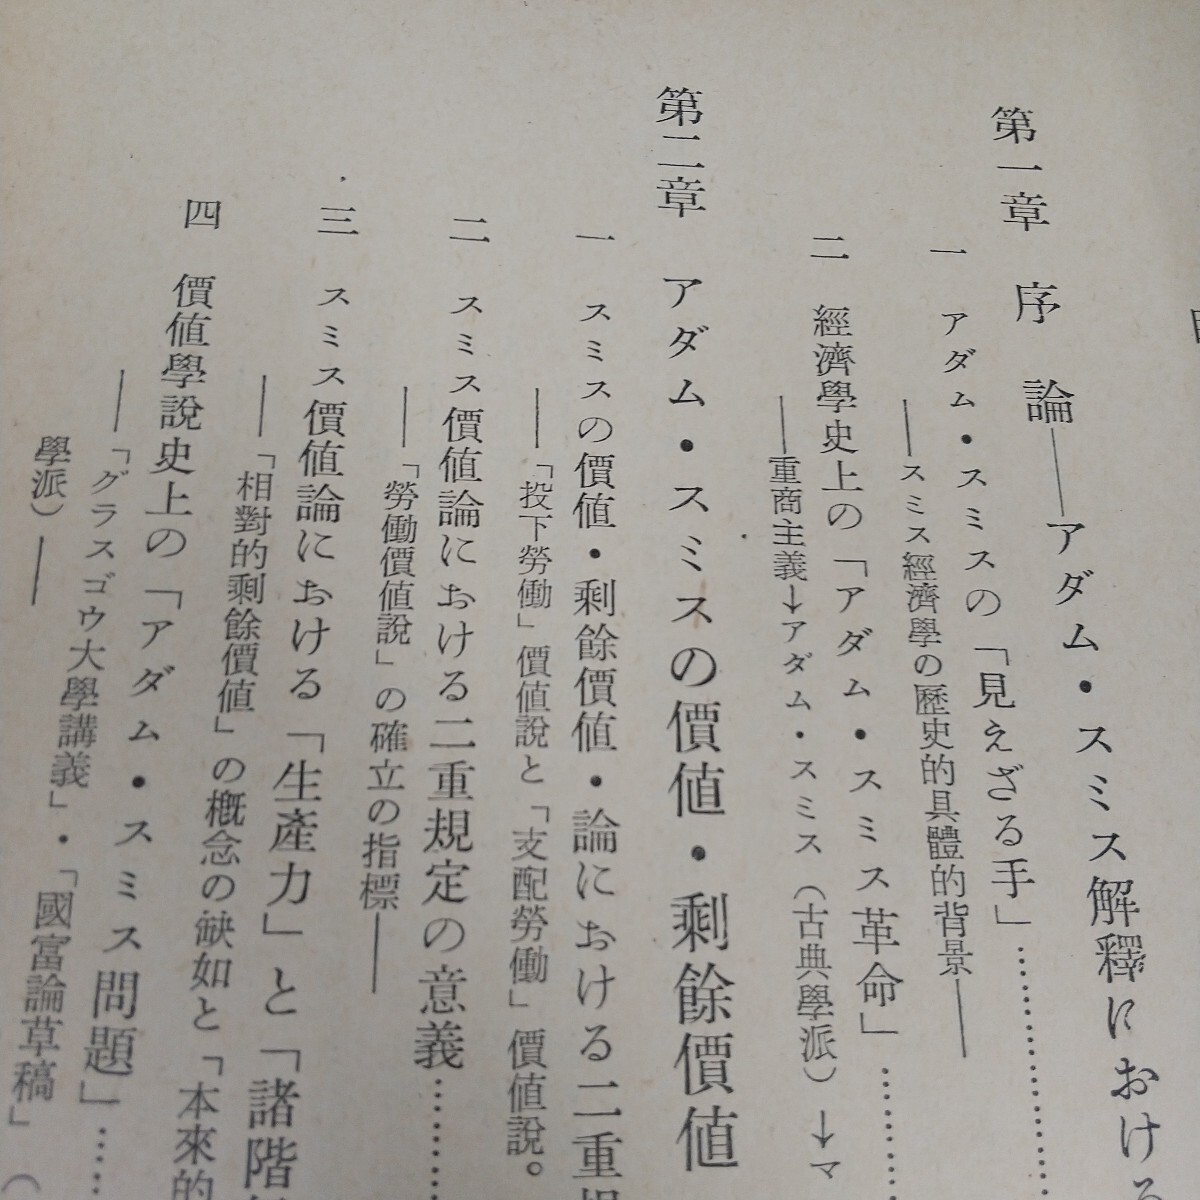 第一章 序論――アダム・スミス解釋における
一 アダム・スミスの「見えざる手」…………
――スミス經濟學の歷史的具體的背景――
二 經濟學史上の「アダム・スミス革命」…………
――重商主義→アダム・スミス（古典學派）→マ
第二章 アダム・スミスの價値・剩餘價値
一 スミスの價値・剩餘價値・論における二重規
――「投下勞働」價値說と「支配勞働」價値說。
二 スミス價値論における二重規定の意義…………
――「勞働價値說」の確立の指標――
三 スミス價値論における「生產力」と「諸階
――「相對的剩餘價値」の概念の缺如と「本來的
四 價値學說史上の「アダム・スミス問題」……
――「グラスゴウ大學講義」・「國富論草稿」（
學派）――